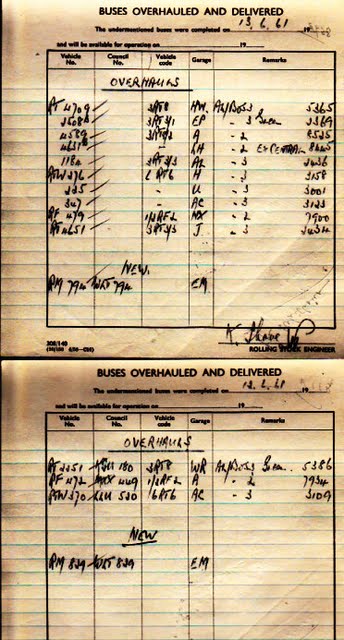 BUSES OVERHAULED AND DELIVERED
The undermentioned buses were completed on 13.6.61 19
and will be available for operation on 19
Vehicle No. Council No. Vehicle code Garage Remarks
OVERHAULS
RT 4709 3RT8 HW 5365
EP - 3 Green 3369
4589 A - 2 8525
LH - 2 Ex CENTRAL
1184 AL - 3 3436
RTW 276 6RT6 H - 3 3158
225 - U - 3 3001
347 - AC - 3 3123
RF 479 1/2RF2 - 2 7900
RT 4651 3RT3/3 J - 3 3434
NEW.
RM 794 WLT 794 EM
308/140
ROLLING STOCK ENGINEER
BUSES OVERHAULED AND DELIVERED
The undermentioned buses were completed on 13.6.61 19
and will be available for operation on 19
Vehicle No. Council No. Vehicle code Garage Remarks
OVERHAULS
RT 2251 KGU 180 3RT8 WR Green 5386
RF 472 MXX 449 1/2RF2 A - 2 7934
RTW 370 LLU 520 6RT6 AC - 3 3109
NEW
RM 829 WLT 829 EM